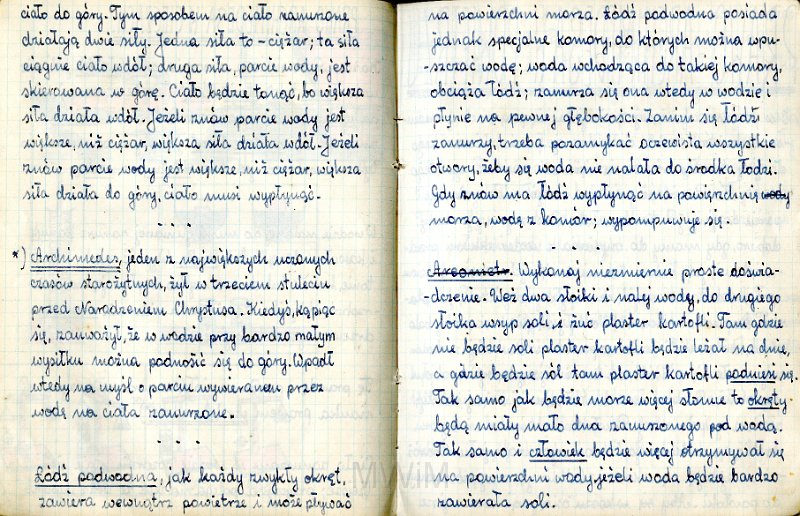 ciało do góry. Tym sposobem na ciało zanurzone
działają dwie siły. Jedna siła to - ciężar; ta siła
ciągnie ciało wdół; druga siła, parcie wody, jest
skierowana w górę. Ciało będzie tonąć, bo większa
siła działa wdół. Jeżeli znów parcie wody jest
większe, niż ciężar, większa siła działa wdół. Jeżeli
znów parcie wody jest większe, niż ciężar, większa
siła działa do góry, ciało musi wypłynąć.
. . .
*) Archimedes, jeden z największych uczonych
czasów starożytnych, żył w trzeciem stuleciu
przed Narodzeniem Chrystusa. Kiedyś, kąpiąc
się, zauważył, że w wodzie przy bardzo małym
wysiłku można podnosić się do góry. Wpadł
wtedy na myśl o parciu wywieranem przez
wodę na ciała zanurzone.
. . .
Łódź podwodna, jak każdy zwykły okręt,
zawiera wewnątrz powietrze i może pływać
na powierzchni morza. Łódź podwodna posiada
jednak specjalne komory, do których można wpu-
-szczać wodę; woda wchodząca do takiej komory,
obciąża łódź; zanurza się ona wtedy w wodzie i
płynie na pewnej głębokości. Zanim się łódź
zanurzy, trzeba pozamykać oczewista wszystkie
otwory, żeby się woda nie nalała do środka łodzi.
Gdy znów ma łódź wypłynąć na powierzchnię wody
morza, wodę z komór; wypompuwuje się.
. . .
Areometr. Wykonaj niezmiernie proste doświa-
-dczenie. Weź dwa słoiki i nalej wody, do drugiego
słoika wsyp soli, i żuć plaster kartofli. Tam gdzie
nie będzie soli plaster kartofli będzie leżał na dnie,
a gdzie będzie sól tam plaster kartofli podniesi się.
Tak samo jak będzie morze więcej słonne to okręty
będą miały mało dna zanurzonego pod wodą.
Tak samo i człowiek będzie więcej otrzymywał się
na powierzchni wody, jeżeli woda będzie bardzo
zawierała soli.
MWiM